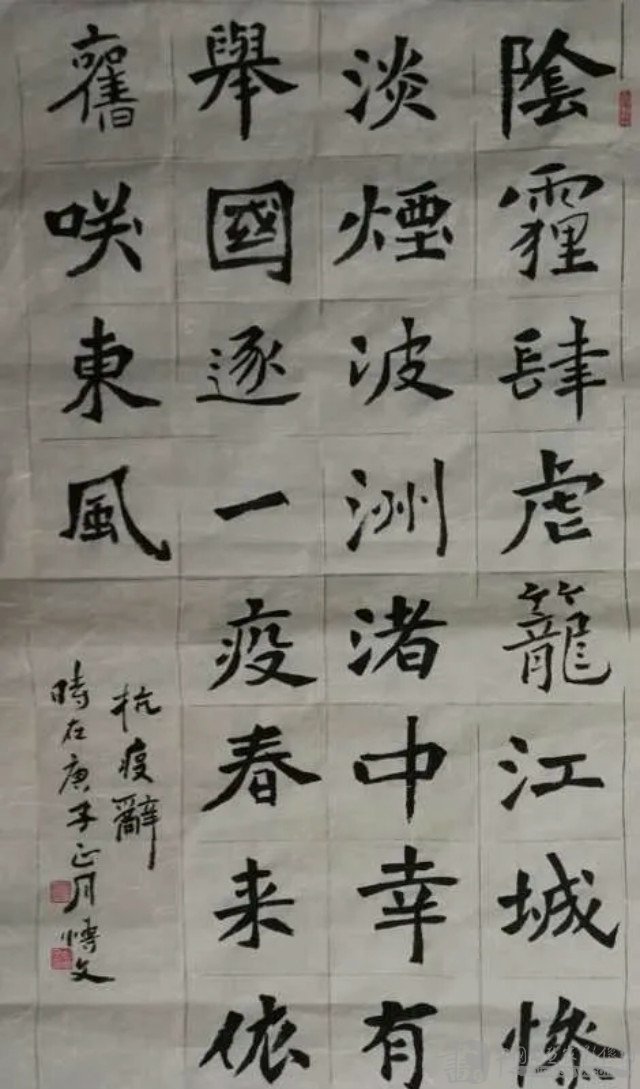 陰霾肆虐籠江城慘
淡煙波洲渚中幸有
舉國逐一疫春来依
舊咲東風
抗疫辭
時在庚子正月博文